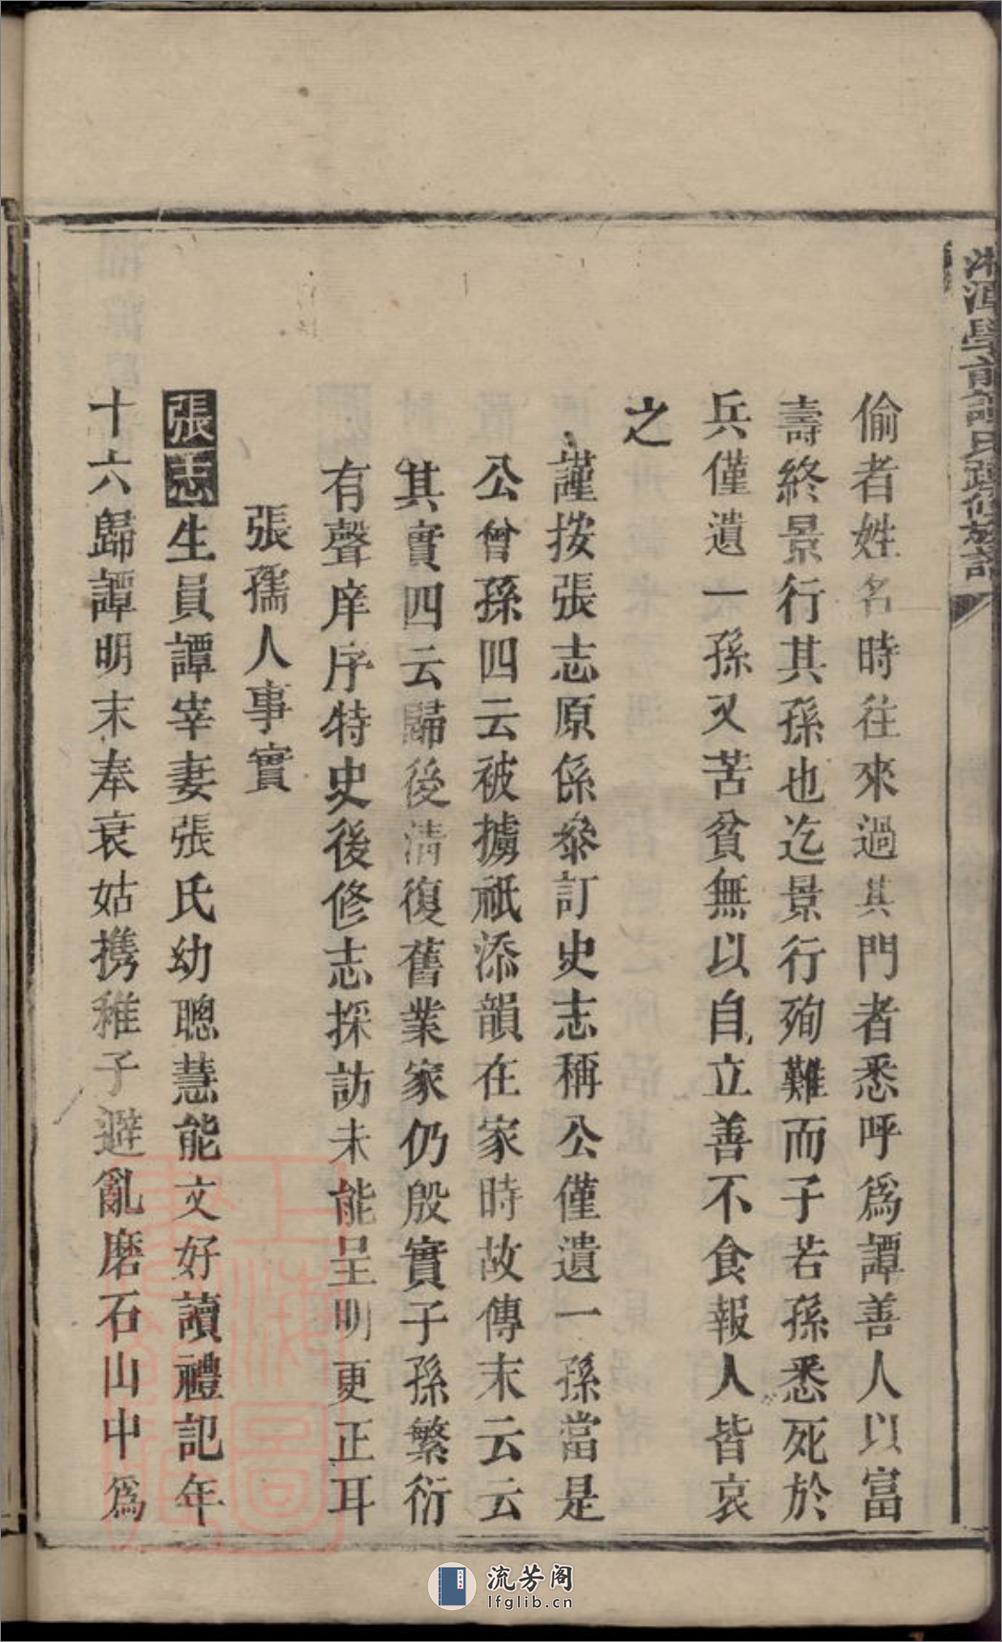 偷者姓名時往來過其門者悉呼爲譚善人以富
壽終景行其孫也迄景行殉難而子若孫悉死於
兵僅遺一孫又苦貧無以自立善不食報人皆哀
之
謹按張志原係叅訂史志稱公僅遺一孫當是
公曾孫四云被擄祇添韻在家時故傳末云云
其實四云歸後清復舊業家仍殷實子孫繁衍
有聲庠序特史後修志採訪未能呈明更正耳
張孺人事實
張志生員譚宰妻張氏幼聰慧能文好讀禮記年
十六歸譚明末奉衰姑携稚子避亂磨石山中爲
流芳阁
lfglib.cn